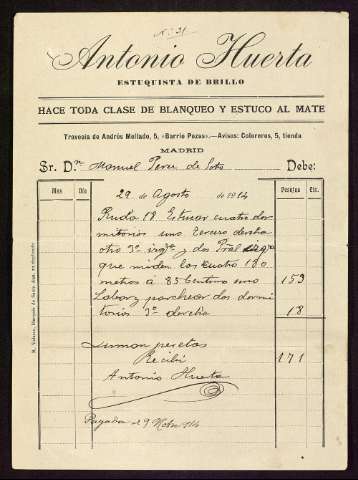 Nº 31
Antonio Huerta
ESTUQUISTA DE BRILLO
HACE TODA CLASE DE BLANQUEO Y ESTUCO AL MATE
Travesía de Andrés Mellado, 5, «Barrio Pozas».—Avisos: Coloreros, 5, tienda
MADRID
Sr. D. Manuel Perez de Soto Debe:
Mes Día Pesetas Cts.
29 de Agosto de 1914
18 Estucar cuatro dor
mitorios uno tercero derecha
otro 3º izqª y dos Pral
que miden los cuatro 180
metros a 85 Centimo uno 153
Labar y parchear dos dormi
torios 3º derecha 18
Suman pesetas 171
Recibí
Antonio Huerta
Pagada 29 914